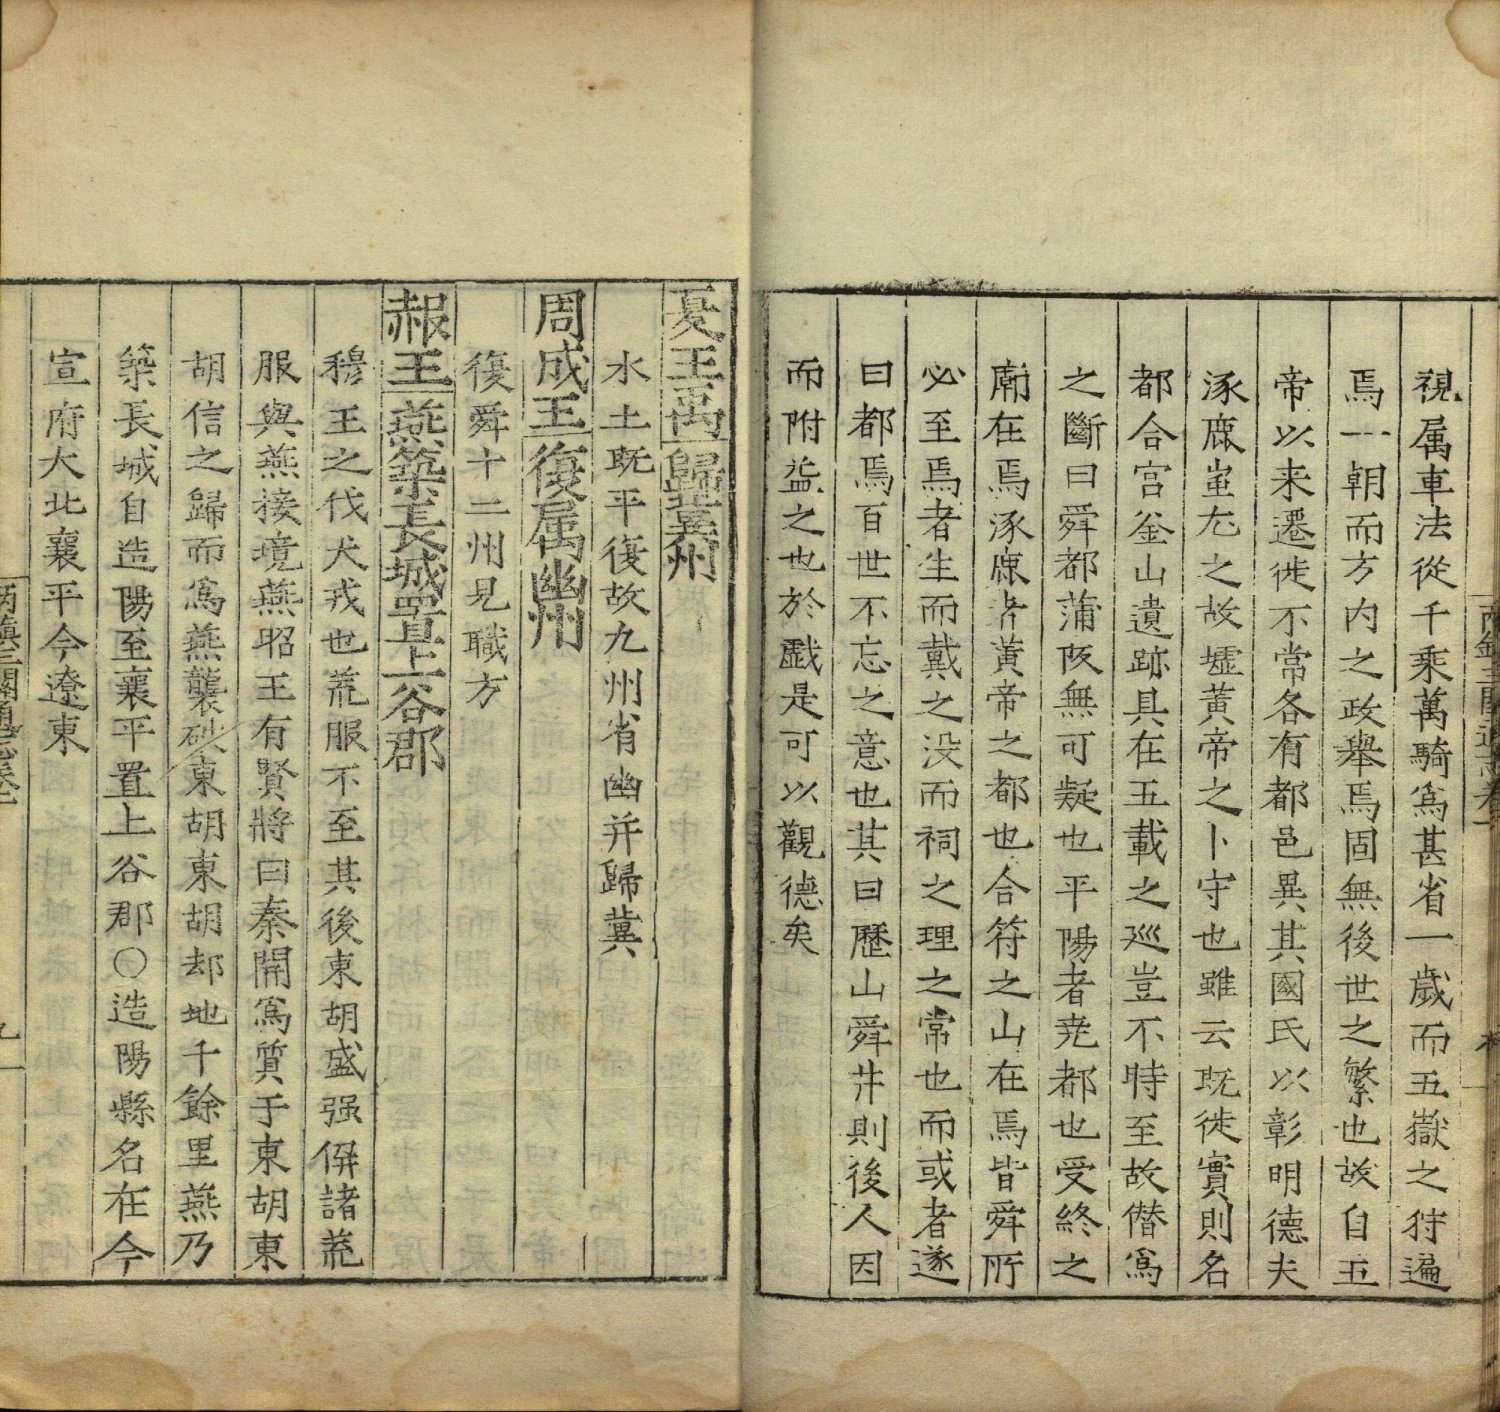 視属車法從千乘萬騎爲甚省一歲而五嶽之狩遍
焉一朝而方内之政舉焉固無後世之繁也故自五
帝以来遷徙不常各有都邑異其國氏以彰明德夫
涿鹿蚩尤之故墟黄帝之卜守也雖云既徙實則名
都合宫釜山遺跡具在五載之廵豈不時至故僣爲
之斷曰舜都蒲阪無可疑也平陽者尭都也受終之
廟在焉涿鹿者黄帝之都也合符之山在焉皆舜所
必至焉者生而戴之没而祠之理之常也而或者遂
曰都焉百世不忘之意也其曰歷山舜井則後人因
而附益之也於戯是可以觀德矣
夏王禹歸兾州
水土既平復故九州省幽并歸冀
周成王復属幽州
復舜十二州見職方
赧王燕築長城置上谷郡
穆王之伐犬戎也荒服不至其後東胡盛强倂諸荒
服與燕接境燕昭王有賢將曰秦開爲質于東胡東
胡信之歸而爲燕襲破東胡東胡却地千餘里燕乃
築長城自造陽至襄平置上谷郡○造陽縣名在今
宣府大北襄平今遼東
两鎮三關通志卷一
九